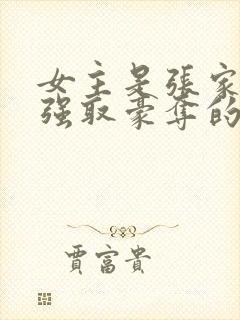 女主是張家
强取豪奪的
賈富貴